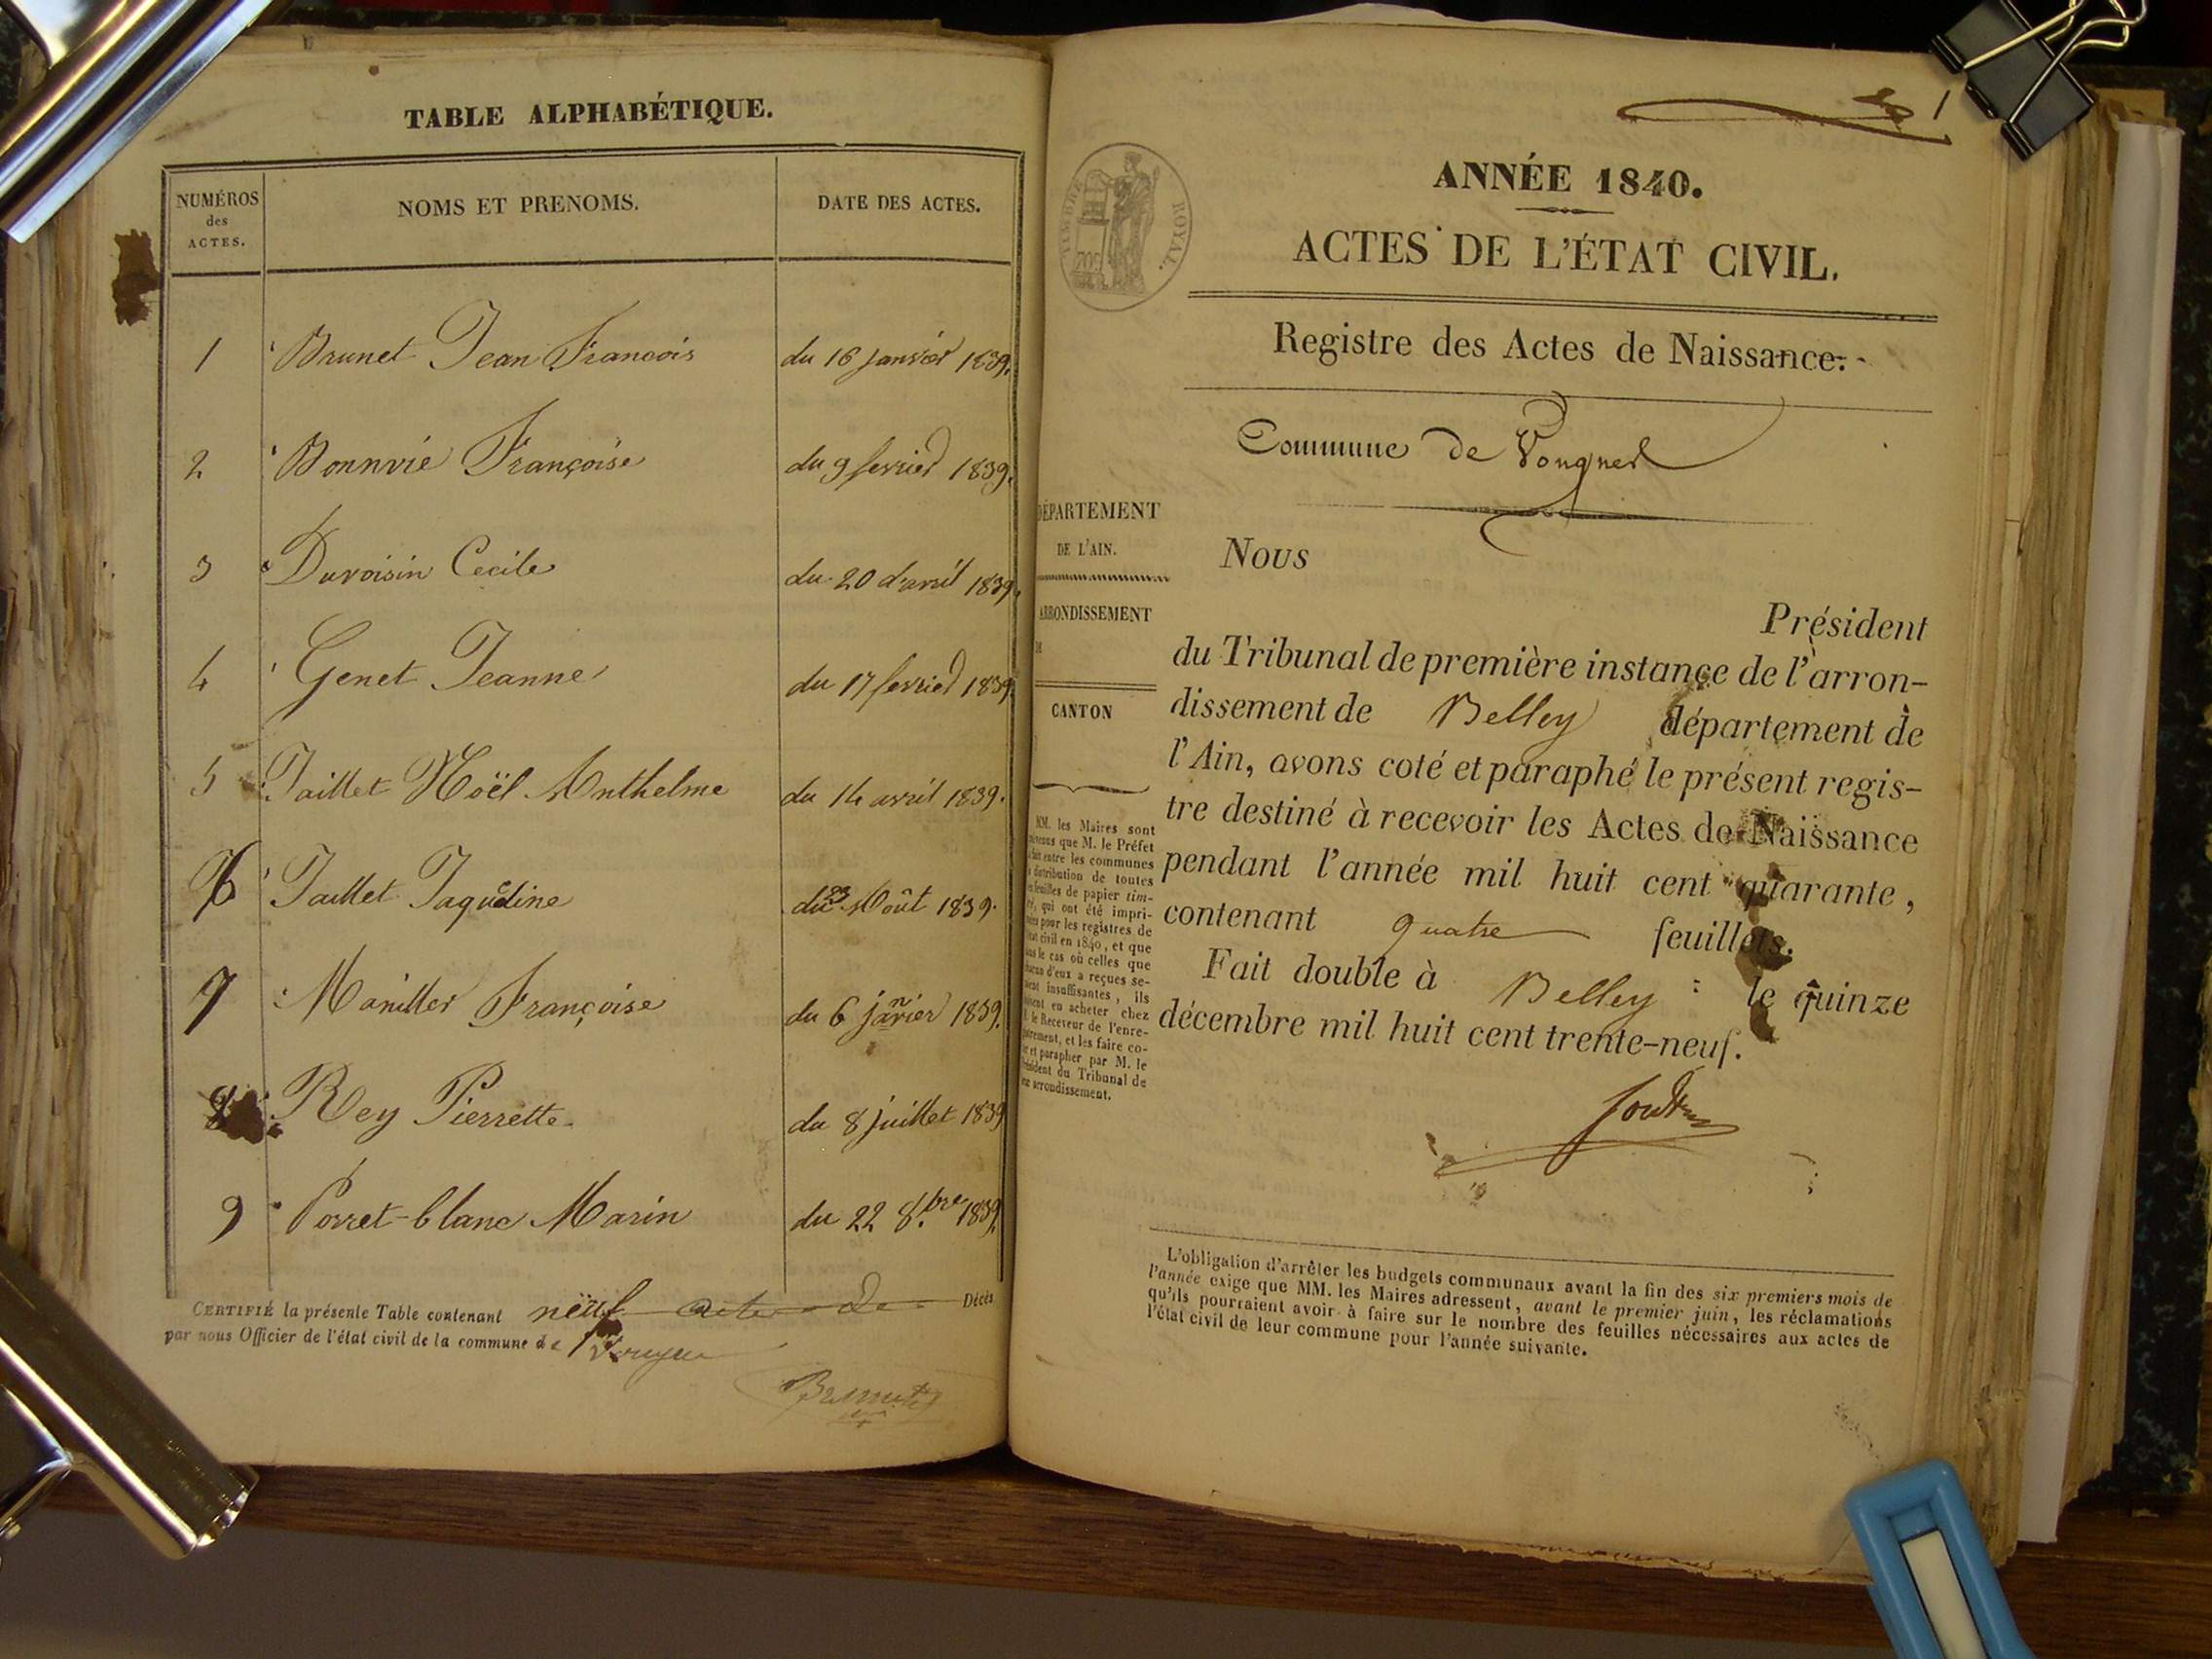 TABLE ALPHABÉTIQUE.
NUMÉROS
des
ACTES.
NOMS ET PRENOMS.
DATE DES ACTES.
1 Brunet Jean Francois du 16 janvier 1839.
2 Bonnvie Françoise du 9 fevrier 1839.
3 Duvoisin Cecile du 20 d'avril 1839.
4 Genet Jeanne du 17 fevrier 1839.
5 Jaillet Noël Anthelme du 14 avril 1839.
6 Jaillet Jaqueline du 23 Août 1839.
7 Maniller Françoise du 6 janvier 1839.
8 Rey Pierrette du 8 juillet 1839
9 Porret-blanc Marin du 22 8.bre 1839.
CERTIFIÉ la présente Table contenant neuf acte de Décès
par nous Officier de l'état civil de la commune de
1
TIMBRE ROYAL.
ANNÉE 1840.
ACTES DE L'ÉTAT CIVIL.
Registre des Actes de Naissance.
Commune de Vongnes
DÉPARTEMENT
DE L'AIN.
ARRONDISSEMENT
DE
CANTON
MM. les Maires sont
prévenus que M. le Préfet
a fait entre les communes
la distribution de toutes
les feuilles de papier tim-
bré, qui ont été impri-
mées pour les registres de
l'état civil en 1840, et que
dans le cas où celles que
chacun d'eux a reçues se-
raient insuffisantes, ils
doivent en acheter chez
M. le Receveur de l'enre-
gistrement, et les faire co-
ter et parapher par M. le
Président du Tribunal de
leur arrondissement.
Nous
Président
du Tribunal de première instance de l'arron-
dissement de Belley département de
l'Ain, avons coté et paraphé le présent regis-
tre destiné à recevoir les Actes de Naissance
pendant l'année mil huit cent quarante,
contenant quatre feuillets.
Fait double à Belley le quinze
décembre mil huit cent trente-neuf.
L'obligation d'arrêter les budgets communaux avant la fin des six premiers mois de
l'année exige que MM. les Maires adressent, avant le premier juin, les réclamations
qu'ils pourraient avoir à faire sur le nombre des feuilles nécessaires aux actes de
l'état civil de leur commune pour l'année suivante.